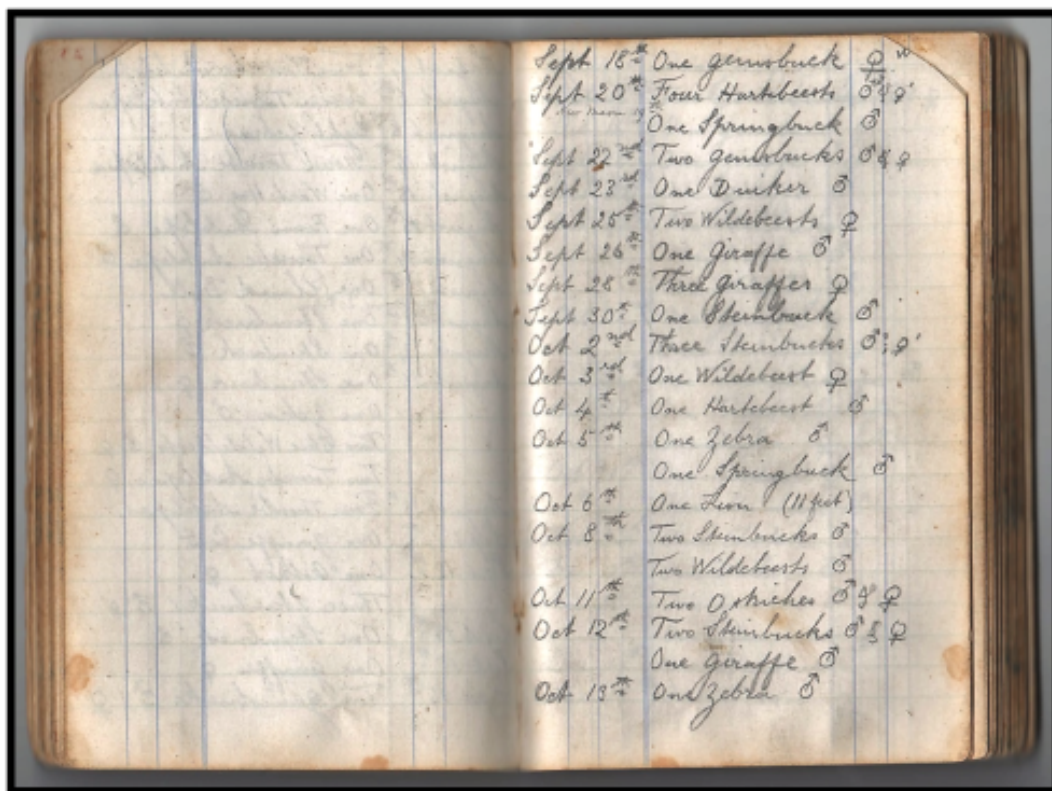 Sept 18th One gemsbuck ♀
Sept 20th Four Hartebeests ♂ & ♀
New Moon 19th
One Springbuck ♂
Sept 22nd Two gemsbucks ♂ & ♀
Sept 23rd One Duiker ♂
Sept 25th Two Wildebeests ♀
Sept 26th One Giraffe ♂
Sept 28th Three giraffes ♀
Sept 30th One Steinbuck ♂
Oct 2nd Three Steinbucks ♂ & ♀
Oct 3rd One Wildebeest ♀
Oct 4th One Hartebeest ♂
Oct 5th One Zebra ♂
One Springbuck ♂
Oct 6th One Lion (11 feet)
Oct 8th Two Steinbucks ♂
Two Wildebeests ♂
Oct 11th Two Ostriches ♂ & ♀
Oct 12th Two Steinbucks ♂ & ♀
One Giraffe ♂
Oct 13th One Zebra ♂